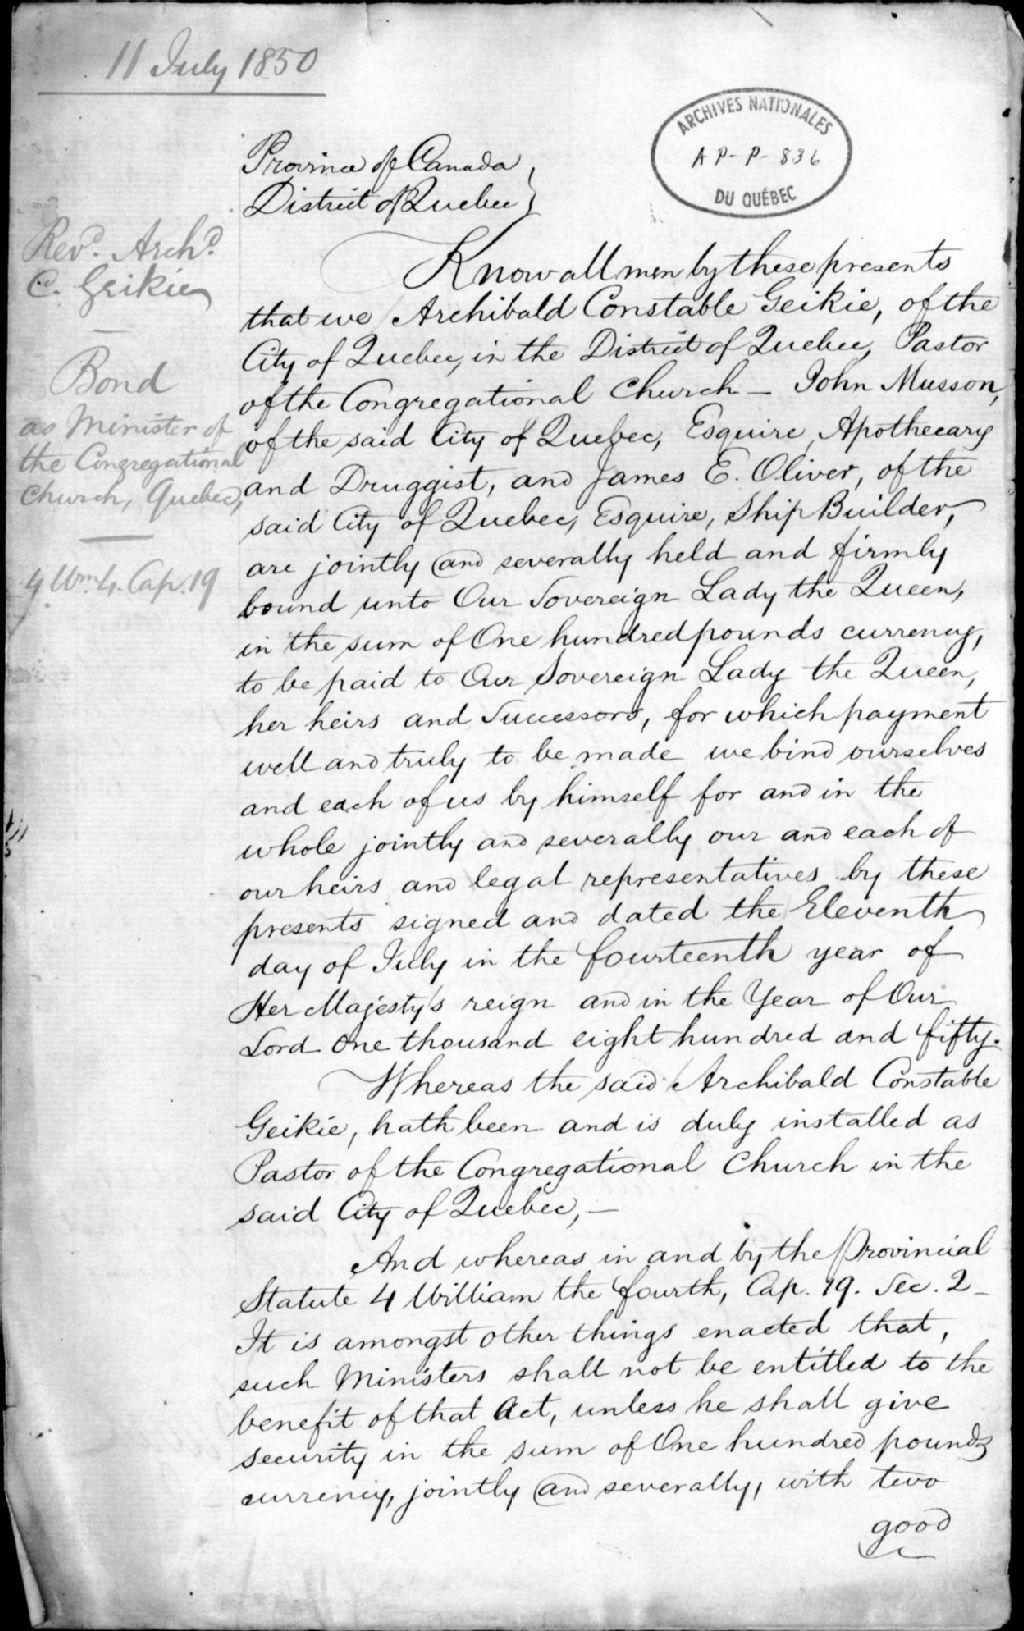 11 July 1850
ARCHIVES NATIONALES
AP-P-836
DU QUÉBEC
Province of Canada
District of Quebec }
Revd. Archd.
C. Geikie
Bond
as Minister of
the Congregational
Church, Quebec,
4 Wm. 4. Cap. 19
Know all men by these presents
that we Archibald Constable Geikie, of the
City of Quebec, in the District of Quebec, Pastor
of the Congregational Church — John Musson,
of the said City of Quebec, Esquire, Apothecary
and Druggist, and James E. Oliver, of the
said City of Quebec, Esquire, Ship Builder,
are jointly and severally held and firmly
bound unto Our Sovereign Lady the Queen,
in the sum of One hundred pounds currency,
to be paid to Our Sovereign Lady the Queen,
her heirs and Successors, for which payment
well and truly to be made we bind ourselves
and each of us by himself for and in the
whole jointly and severally our and each of
our heirs and legal representatives by these
presents signed and dated the Eleventh
day of July in the fourteenth year of
Her Majesty's reign and in the Year of Our
Lord One thousand eight hundred and fifty.
Whereas the said Archibald Constable
Geikie, hath been and is duly installed as
Pastor of the Congregational Church in the
said City of Quebec, —
And whereas in and by the Provincial
Statute 4 William the fourth, Cap. 19. Sec. 2 -
It is amongst other things enacted that,
such Ministers shall not be entitled to the
benefit of that Act, unless he shall give
security in the sum of One hundred pounds
currency, jointly and severally, with two
good